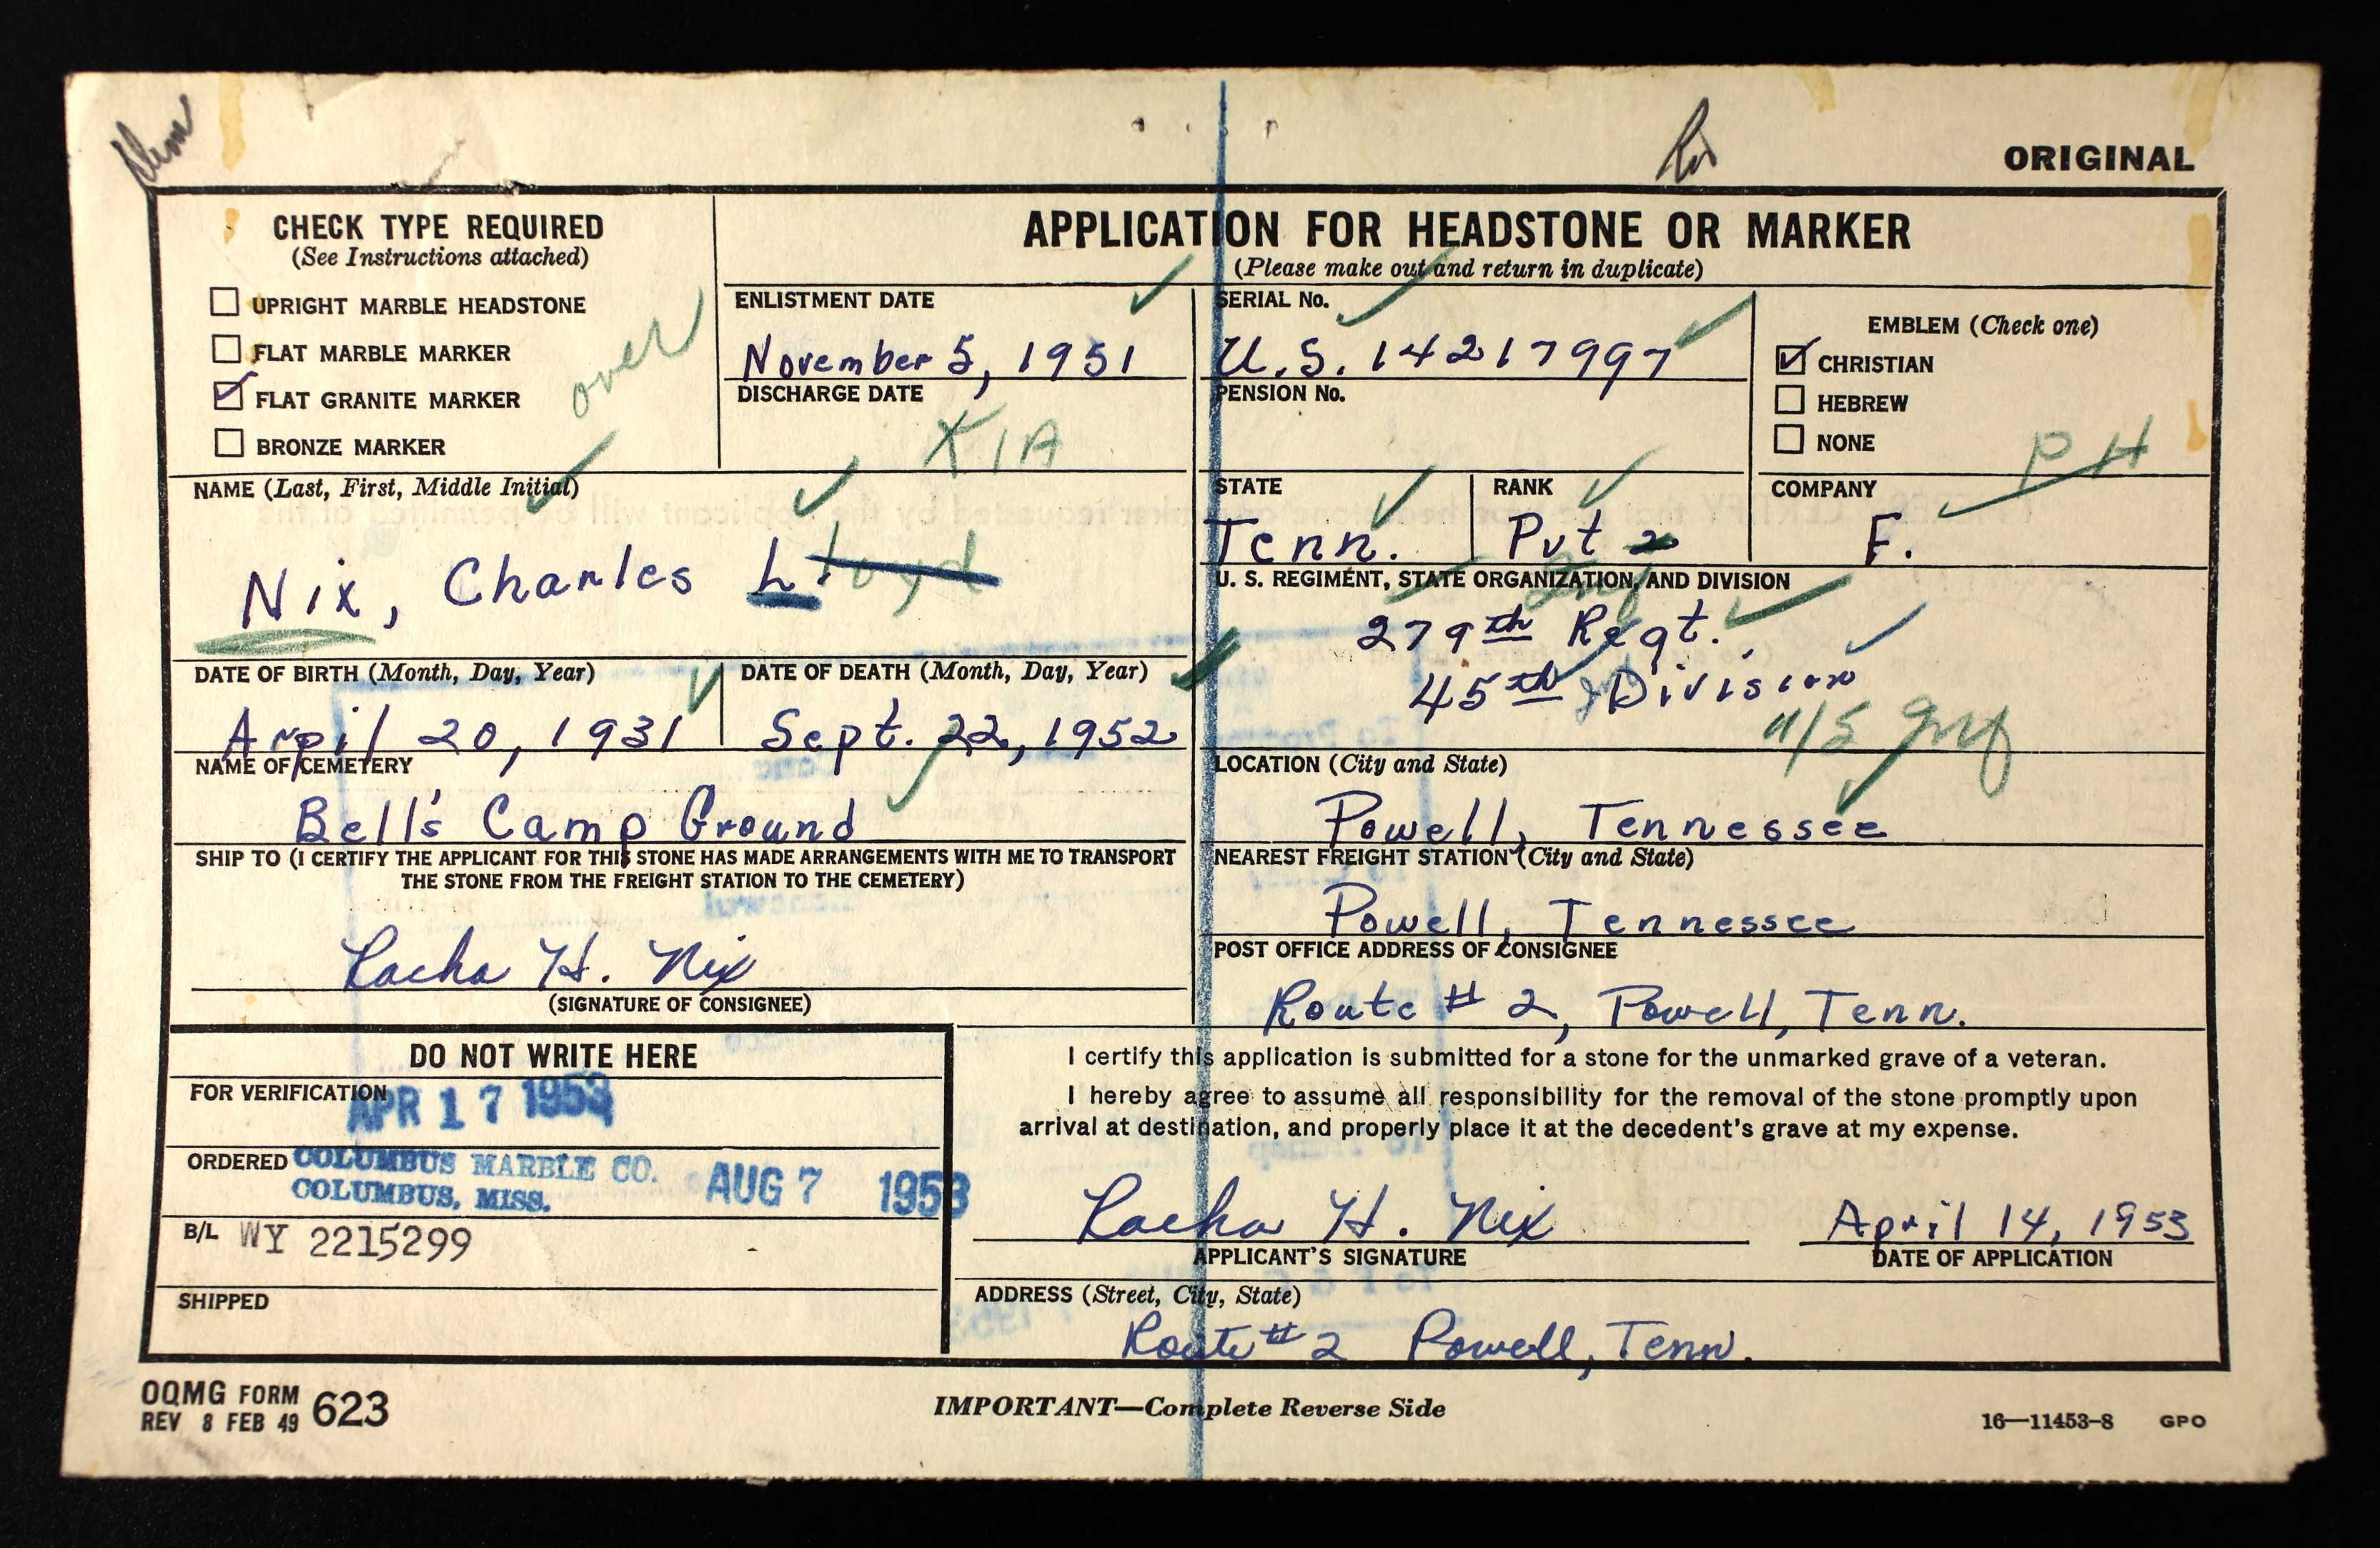 ORIGINAL
CHECK TYPE REQUIRED
(See Instructions attached)
UPRIGHT MARBLE HEADSTONE
FLAT MARBLE MARKER
FLAT GRANITE MARKER
BRONZE MARKER
over
APPLICATION FOR HEADSTONE OR MARKER
(Please make out and return in duplicate)
ENLISTMENT DATE
November 5, 1951
DISCHARGE DATE
KIA
SERIAL No.
U.S. 14217997
PENSION No.
EMBLEM (Check one)
CHRISTIAN
HEBREW
NONE
PH
NAME (Last, First, Middle Initial)
Nix, Charles L.loyd
STATE
Tenn.
RANK
Pvt 2
COMPANY
F.
U. S. REGIMENT, STATE ORGANIZATION, AND DIVISION
Inf
279th Regt.
45th Inf Division
DATE OF BIRTH (Month, Day, Year)
April 20, 1931
DATE OF DEATH (Month, Day, Year)
Sept. 22, 1952
NAME OF CEMETERY
Bell's Camp Ground
LOCATION (City and State)
Powell, Tennessee
SHIP TO (I CERTIFY THE APPLICANT FOR THIS STONE HAS MADE ARRANGEMENTS WITH ME TO TRANSPORT
THE STONE FROM THE FREIGHT STATION TO THE CEMETERY)
NEAREST FREIGHT STATION (City and State)
Powell, Tennessee
H. Nix
(SIGNATURE OF CONSIGNEE)
POST OFFICE ADDRESS OF CONSIGNEE
Route # 2, Powell, Tenn.
DO NOT WRITE HERE
FOR VERIFICATION
APR 17 1953
ORDERED COLUMBUS MARBLE CO. AUG 7 1953
COLUMBUS, MISS.
B/L WY 2215299
SHIPPED
I certify this application is submitted for a stone for the unmarked grave of a veteran.
I hereby agree to assume all responsibility for the removal of the stone promptly upon
arrival at destination, and properly place it at the decedent's grave at my expense.
H. Nix
April 14, 1953
APPLICANT'S SIGNATURE
DATE OF APPLICATION
ADDRESS (Street, City, State)
Route # 2 Powell, Tenn.
OQMG FORM 623
REV 8 FEB 49
IMPORTANT—Complete Reverse Side
16—11453-8 GPO